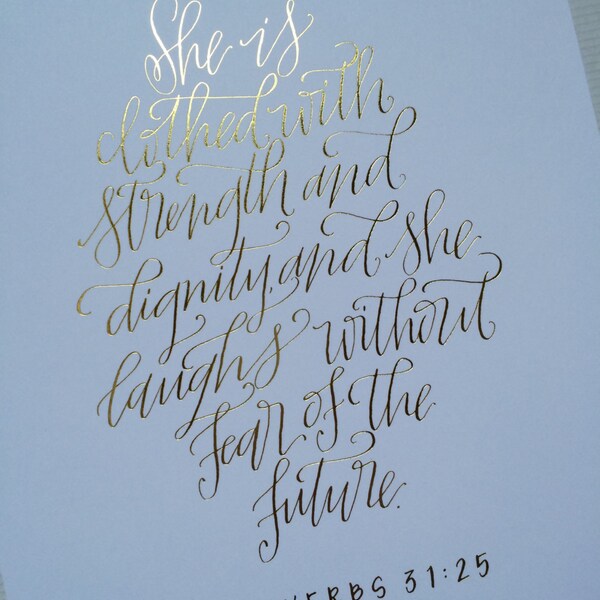 She is
clothed with
strength and
dignity, and she
laughs without
fear of the
future.
ERBS 31:25